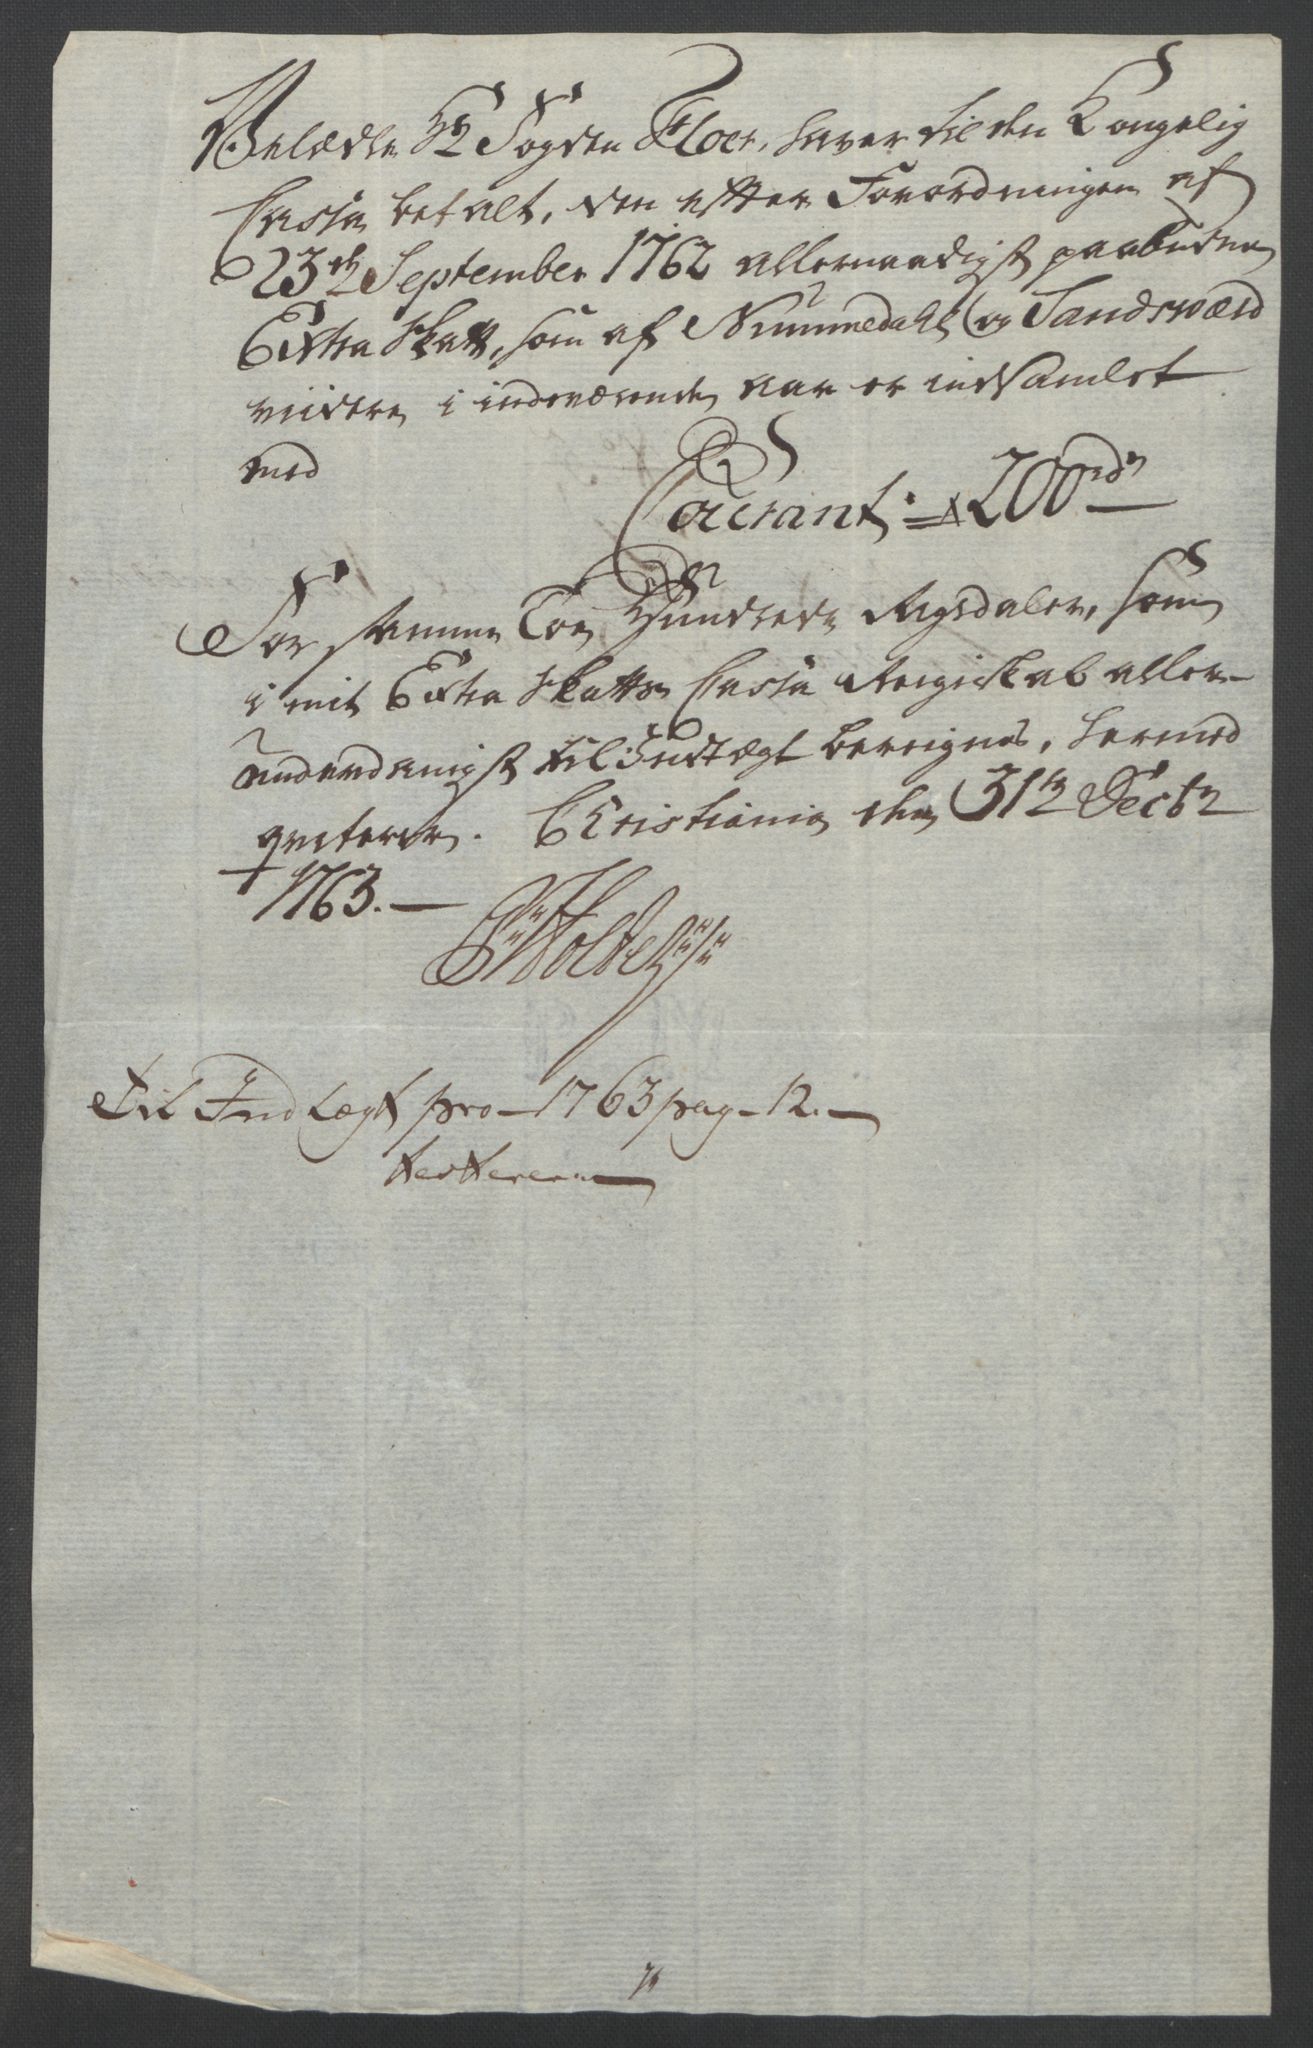 Velædle Hr Fogden Floer, haver til den Kongelig
Cassa betalt, den efter Forordningen af
23de September 1762 allernaadigst paabudne
Extra Skatt, som af Nummedahls og Sandsværd
viidere i indeværende Aar er indsamlet
med
Courant = 200 rdr
For samme Toe Hundrede Rigsdaler, som
i mit Extra Skatts Cassa Reigiskab aller-
underdanigst til Indtægt bereignes, hermed
qviterer. Christiania den 31te Decbr
1763. —
Holde
Til Indtægt pro 1763 pag 12. —
testerer